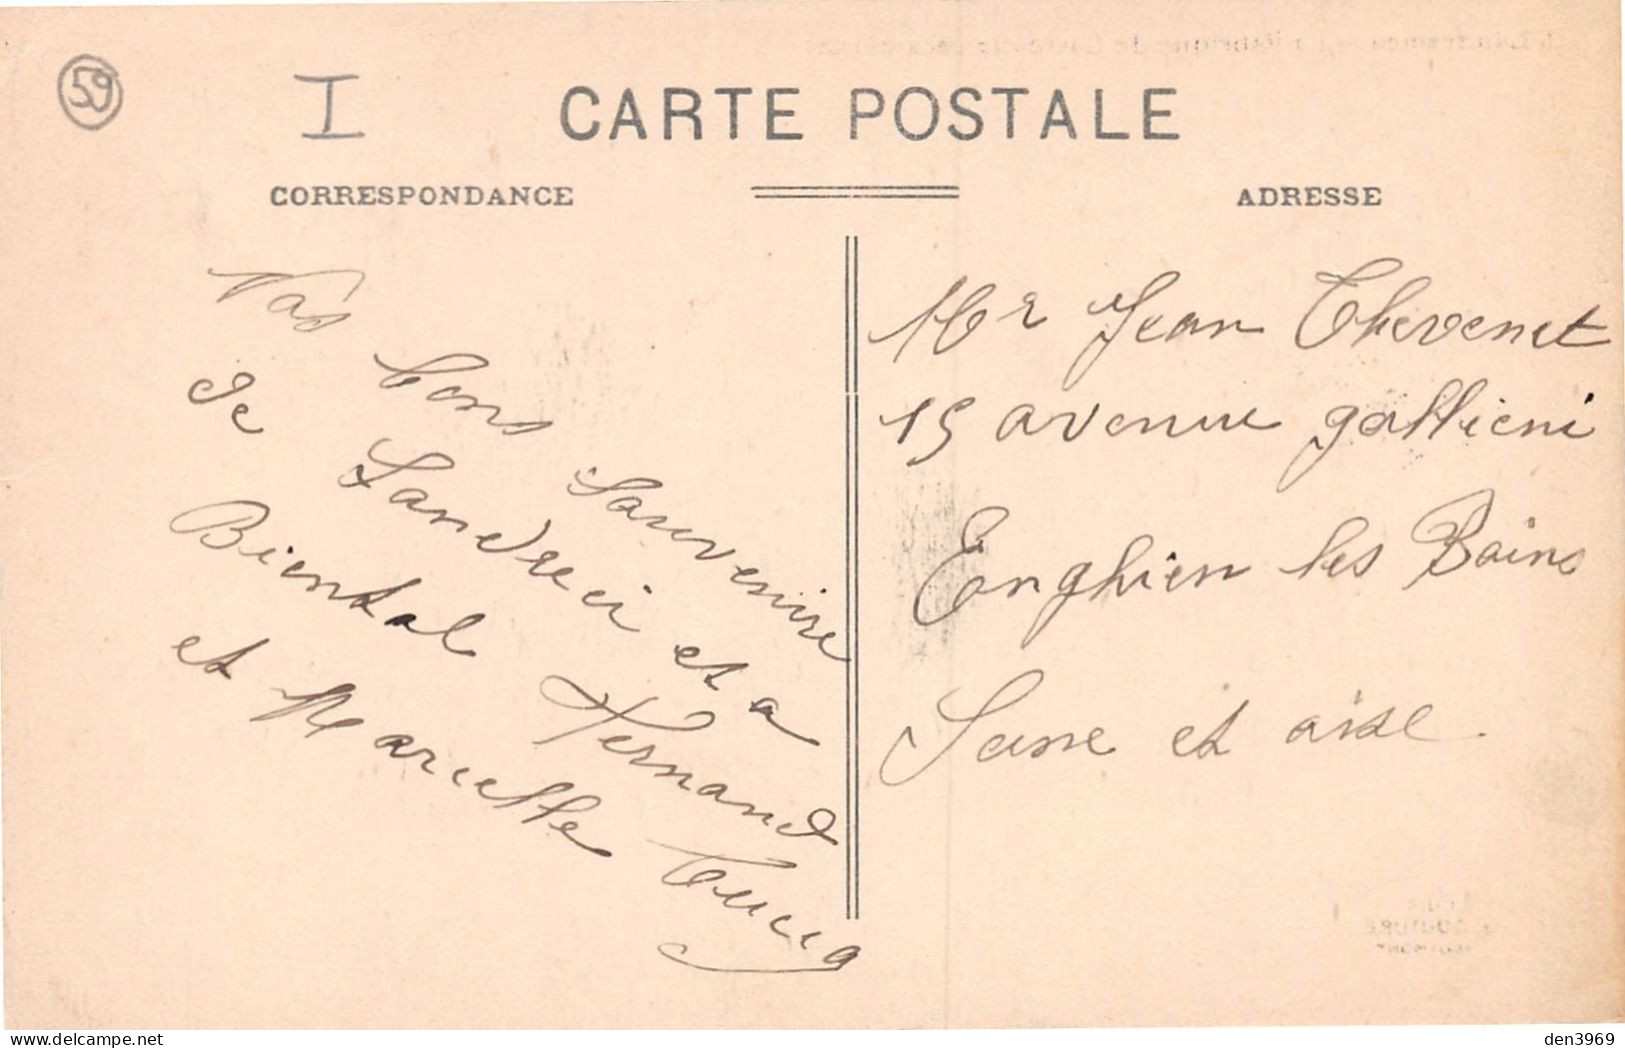 59
I
CARTE POSTALE
CORRESPONDANCE
ADRESSE
Nos bons Souvenire
de Landreci et a
Biental Fernand
et Marcelle
Mr Jean Thevenet
15 avenue gallieni
Enghien les Bains
Seine et oise.
den3969